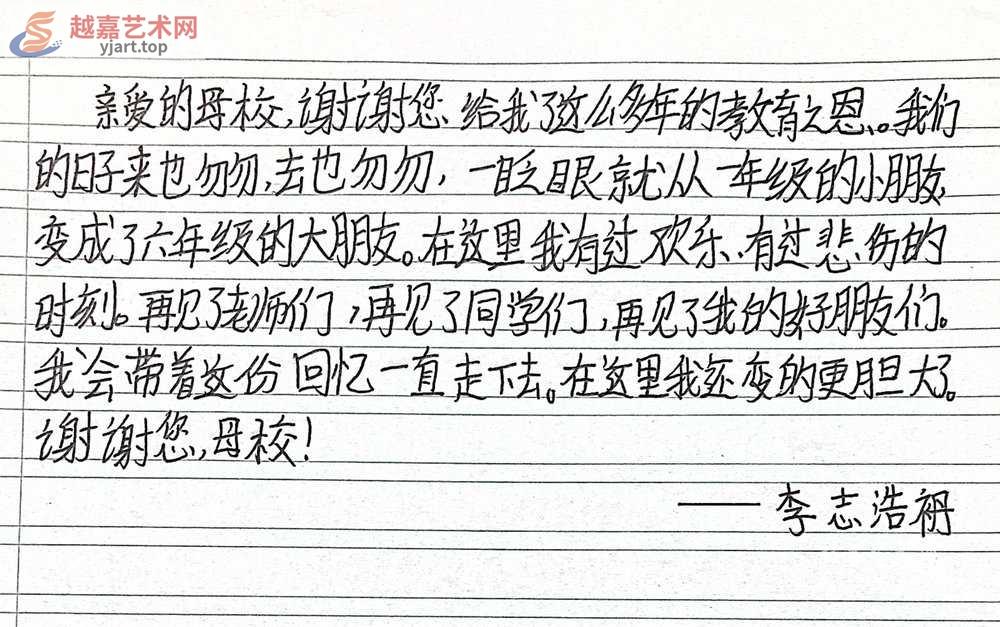 越嘉艺术网
yjart.top
亲爱的母校,谢谢您给我了这么多年的教育之恩。我们
的日子来也匆匆,去也匆匆,一眨眼就从一年级的小朋友,
变成了六年级的大朋友。在这里我有过欢乐、有过悲伤的
时刻。再见了老师们,再见了同学们,再见了我的好朋友们。
我会带着这份回忆一直走下去。在这里我还变的更胆大了。
谢谢您,母校!
——李志浩